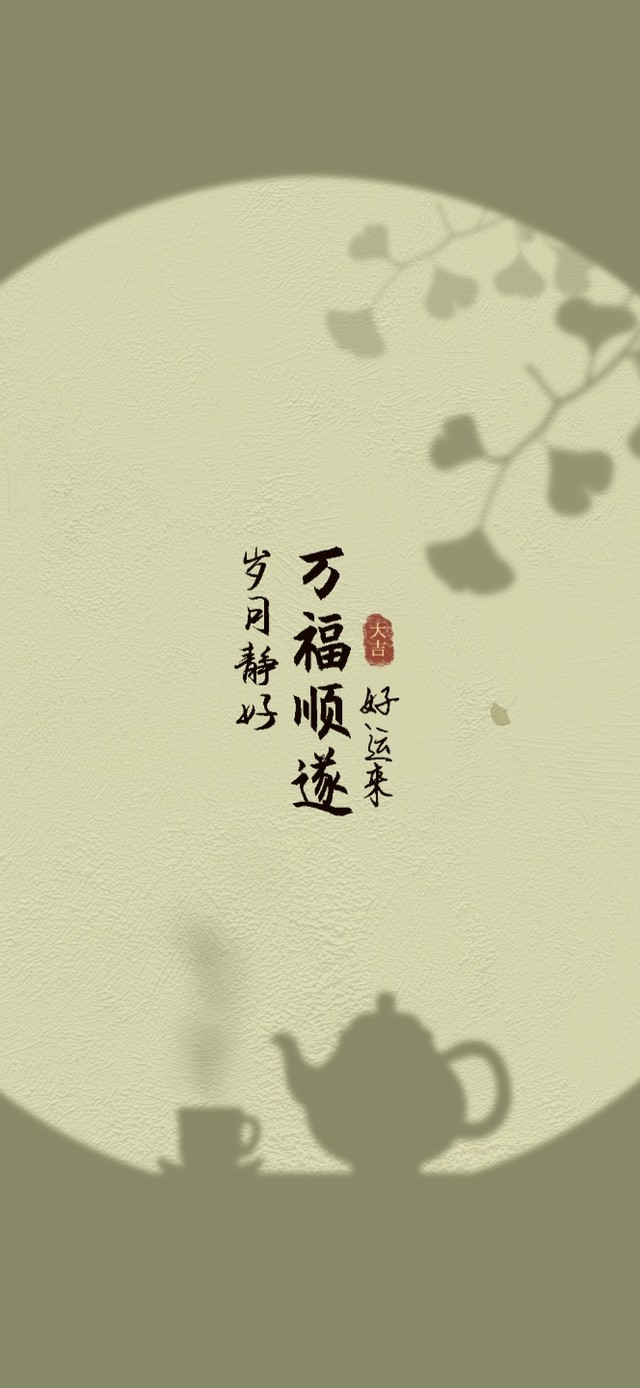 大吉
好运来
万福顺遂
岁月静好